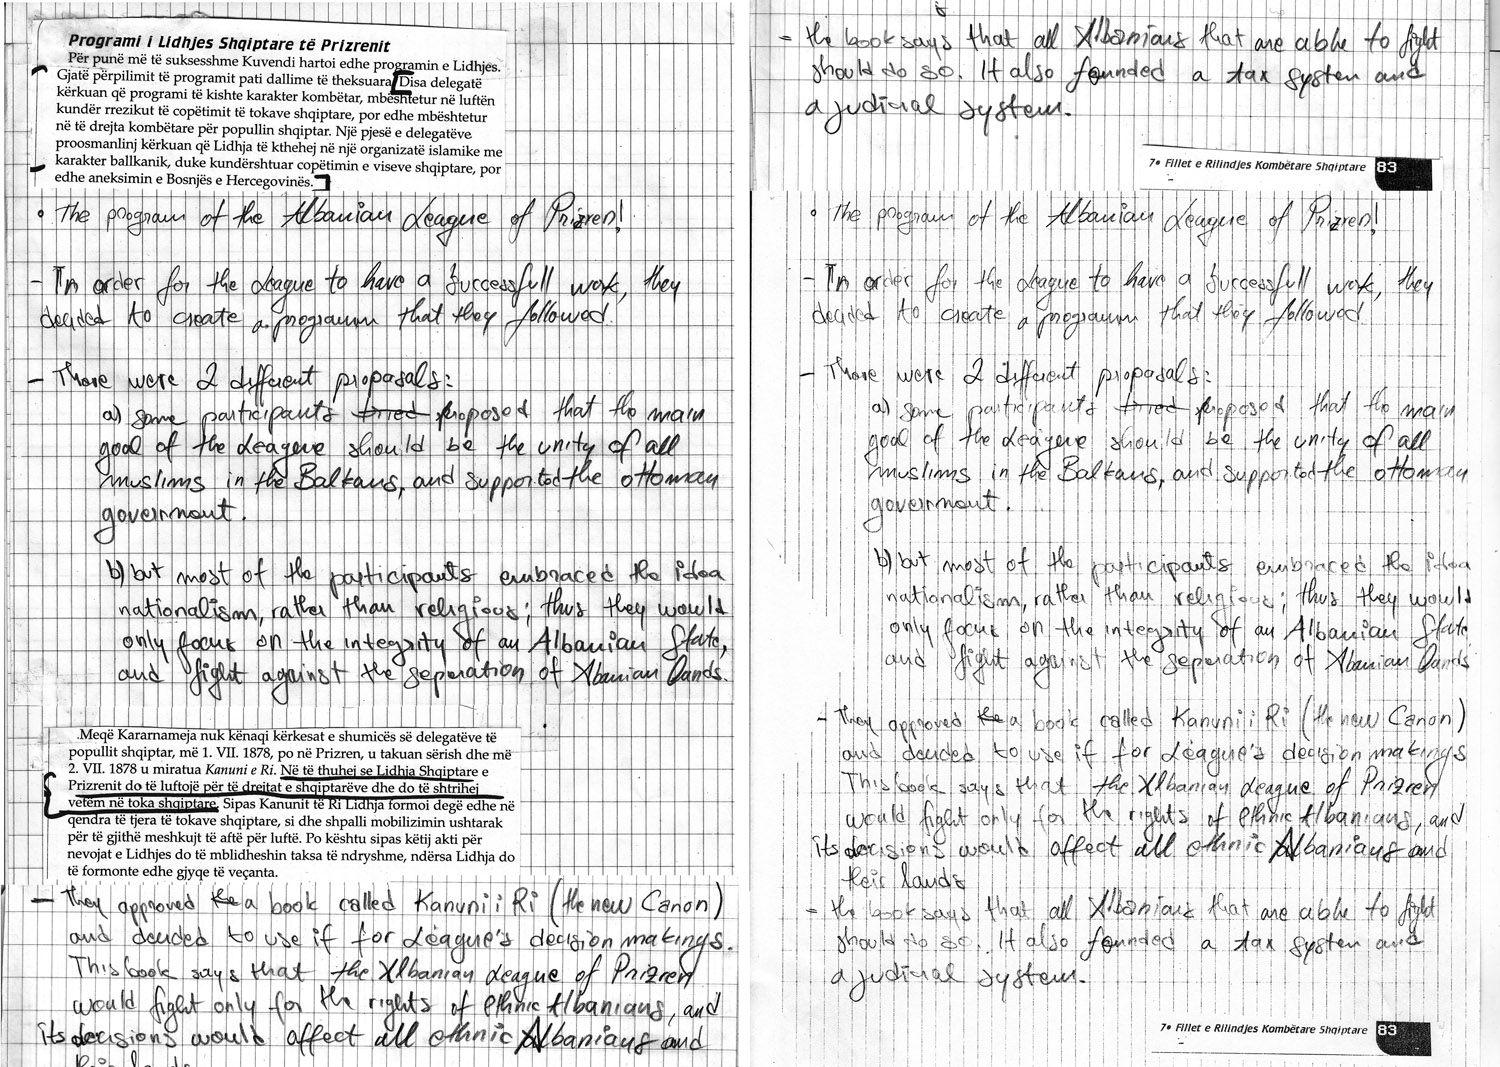 Programi i Lidhjes Shqiptare të Prizrenit
Për punë më të suksesshme Kuvendi hartoi edhe programin e Lidhjes.
Gjatë përpilimit të programit pati dallime të theksuara. Disa delegatë
kërkuan që programi të kishte karakter kombëtar, mbështetur në luftën
kundër rrezikut të copëtimit të tokave shqiptare, por edhe mbështetur
në të drejta kombëtare për popullin shqiptar. Një pjesë e delegatëve
proosmanlinj kërkuan që Lidhja të kthehej në një organizatë islamike me
karakter ballkanik, duke kundërshtuar copëtimin e viseve shqiptare, por
edhe aneksimin e Bosnjës e Hercegovinës.
• The program of the Albanian League of Prizren!
- In order for the League to have a successfull work, they
decided to create a programm that they followed.
- There were 2 different proposals:
a) some participants tried proposed that the main
goal of the League should be the unity of all
muslims in the Balkans, and supported the ottoman
government.
b) but most of the participants embraced the idea
nationalism, rather than religious; thus they would
only focus on the integrity of an Albanian State,
and fight against the seperation of Abanian Lands.
Meqë Kararnameja nuk kënaqi kërkesat e shumicës së delegatëve të
popullit shqiptar, më 1. VII. 1878, po në Prizren, u takuan sërish dhe më
2. VII. 1878 u miratua Kanuni e Ri. Në të thuhej se Lidhja Shqiptare e
Prizrenit do të luftojë për të drejtat e shqiptarëve dhe do të shtrihej
vetëm në toka shqiptare. Sipas Kanunit të Ri Lidhja formoi degë edhe në
qendra të tjera të tokave shqiptare, si dhe shpalli mobilizimin ushtarak
për të gjithë meshkujt të aftë për luftë. Po kështu sipas këtij akti për
nevojat e Lidhjes do të mblidheshin taksa të ndryshme, ndërsa Lidhja do
të formonte edhe gjyqe të veçanta.
- They approved the a book called Kanuni i Ri (the new Canon)
and decided to use if for League's decision makings.
This book says that the Albanian League of Prizren
would fight only for the rights of ethnic Albanians, and
its decisions would affect all ethnic Albanians and
- the book says that all Albanians that are able to fight
should do so. It also founded a tax system and
a judicial system.
7• Fillet e Rilindjes Kombëtare Shqiptare 83
• The program of the Albanian League of Prizren!
- In order for the League to have a successfull work, they
decided to create a programm that they followed
- There were 2 different proposals:
a) some participants tried proposed that the main
goal of the League should be the unity of all
muslims in the Balkans, and supported the ottoman
government.
b) but most of the participants embraced the idea
nationalism, rather than religious; thus they would
only focus on the integrity of an Albanian State,
and fight against the seperation of Abanian Lands
- They approved the a book called Kanuni i Ri (the new Canon)
and decided to use if for League's decision makings
This book says that the Albanian League of Prizren
would fight only for the rights of ethnic Albanians, and
its decisions would affect all ethnic Albanians and
their lands
- the book says that all Albanians that are able to fight
should do so. It also founded a tax system and
a judicial system.
7• Fillet e Rilindjes Kombëtare Shqiptare 83